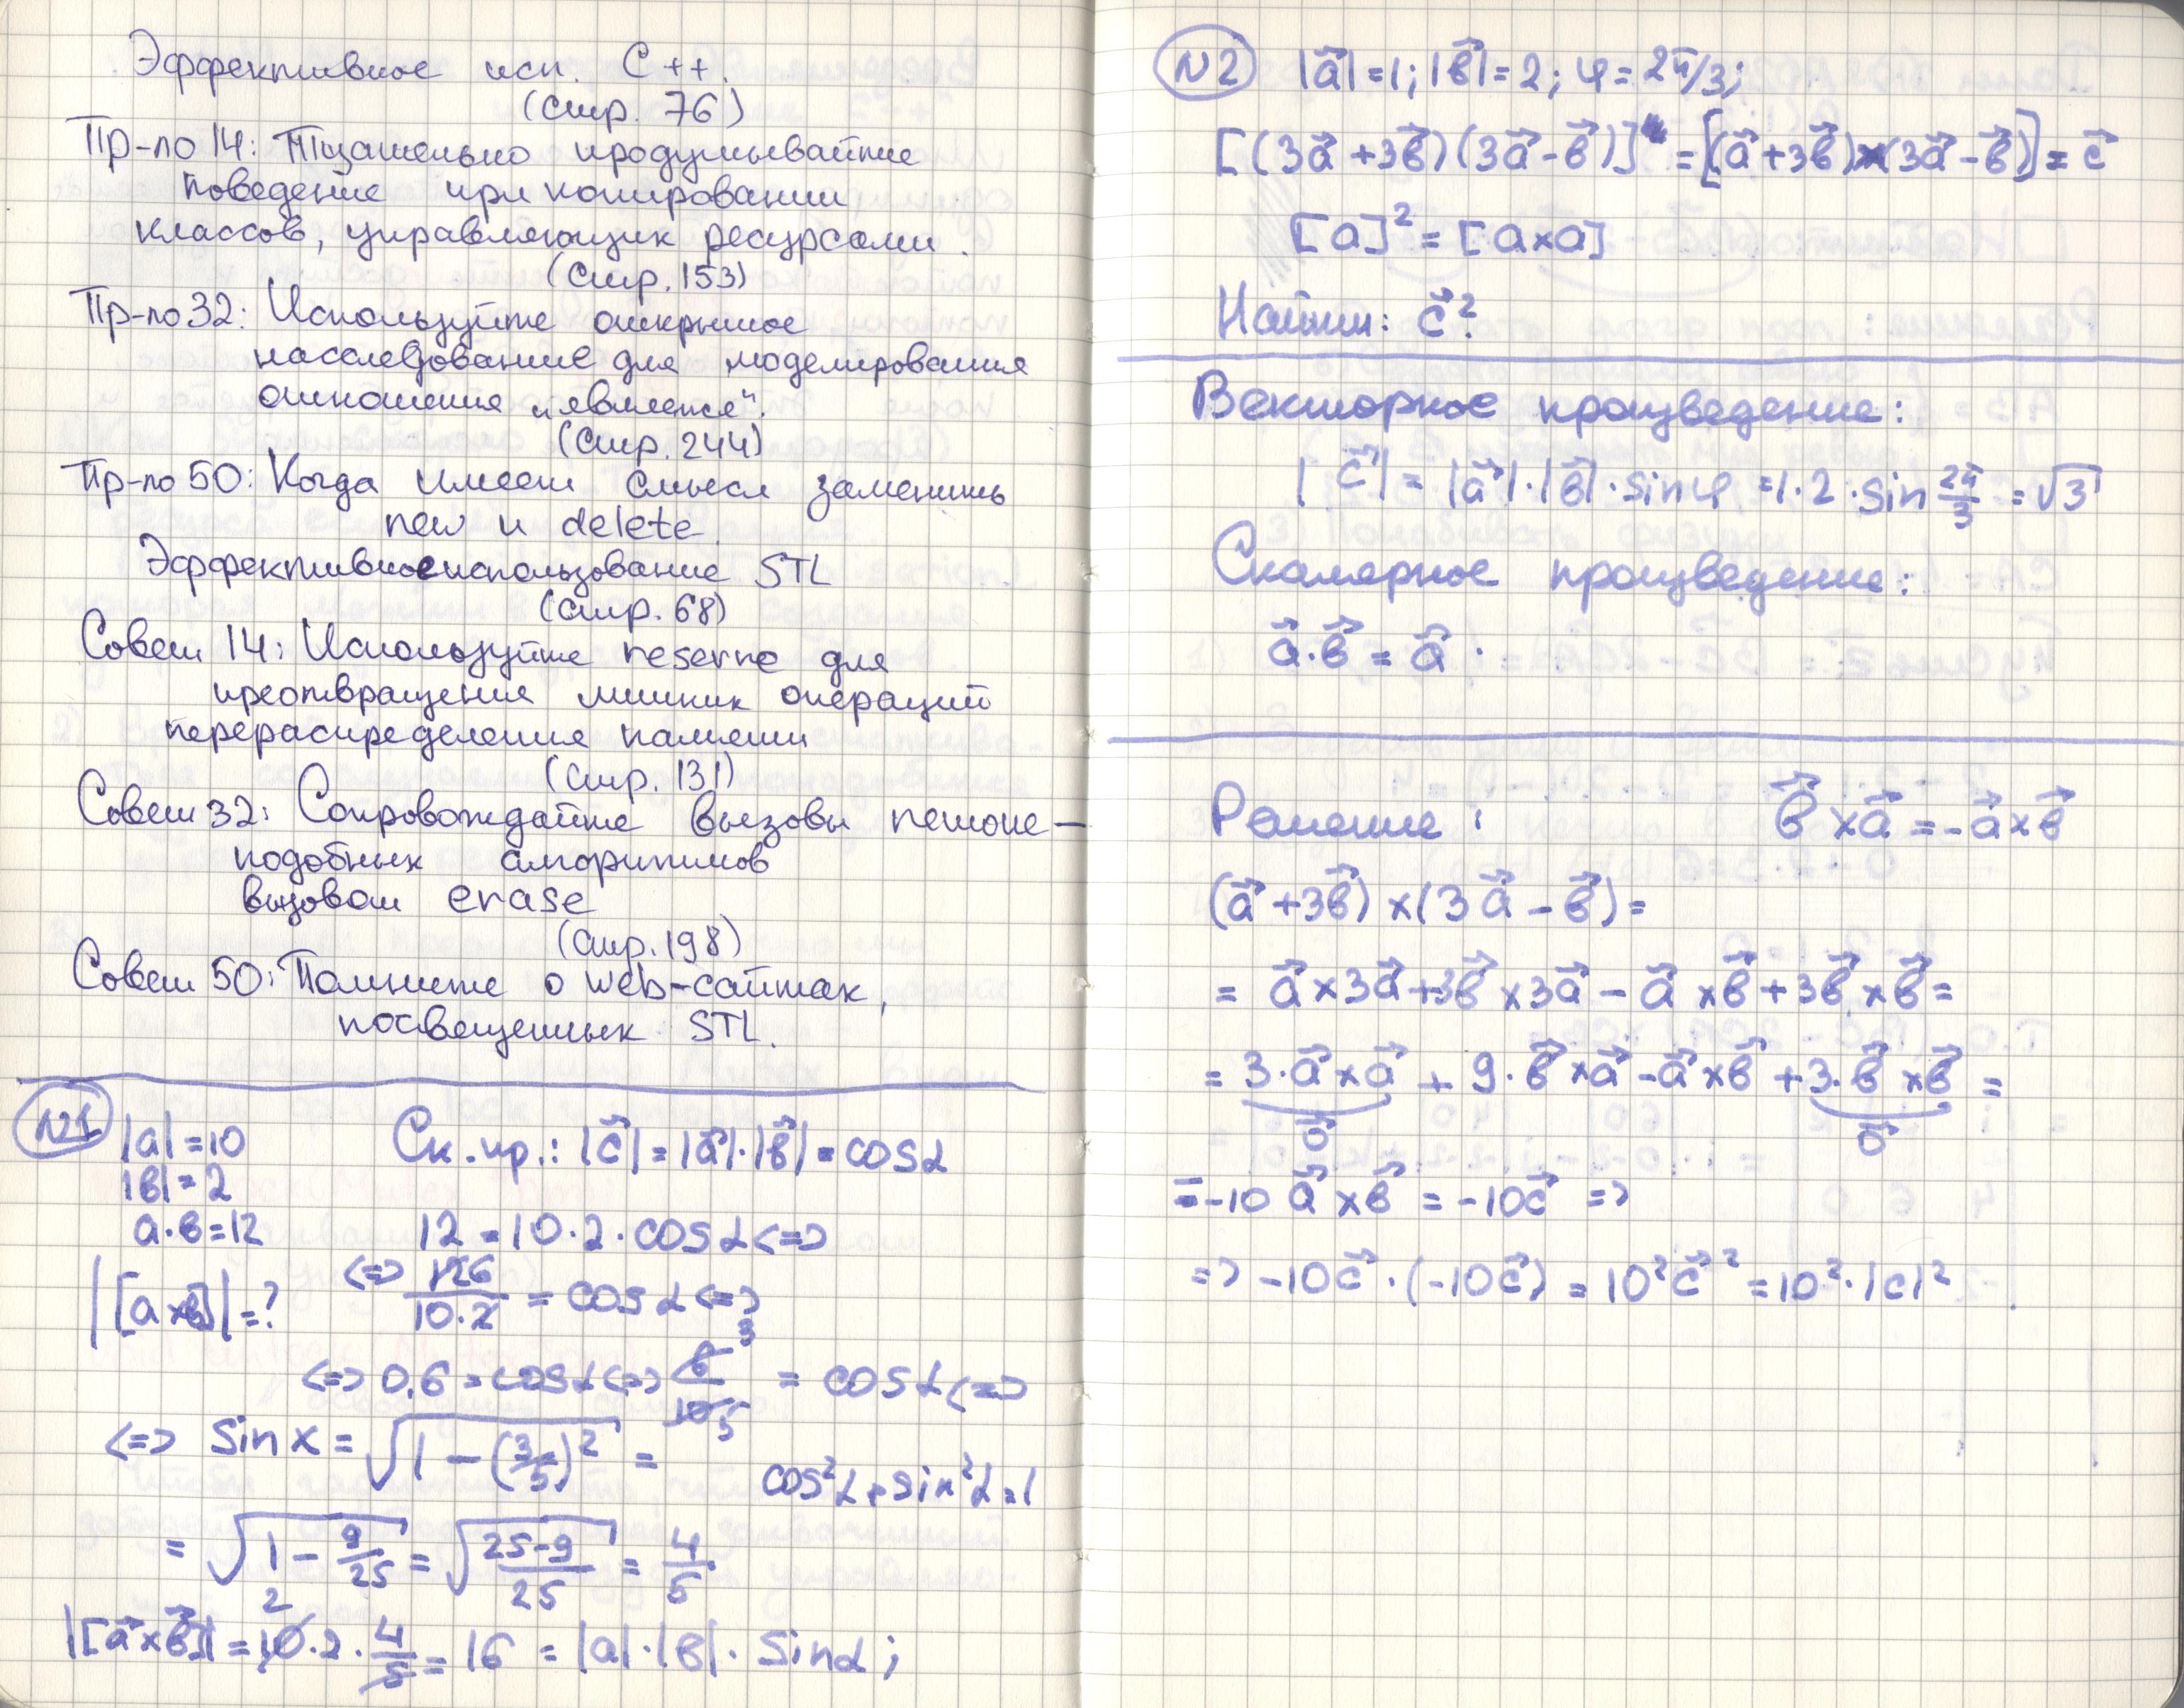 Эффективное исп. С++.
(стр. 76)
Пр-ло 14: Тщательно продумывайте
поведение при копировании
классов, управляющих ресурсами.
(стр. 153)
Пр-ло 32: Используйте открытое
наследование для моделирования
отношения „является".
(стр. 244)
Пр-ло 50: Когда имеет смысл заменить
new и delete.
Эффективное использование STL
(стр. 68)
Совет 14: Используйте reserve для
преотвращения лишних операций
перераспределения памяти
(стр. 131)
Совет 32: Сопровождайте вызовы remove-
подобных алгоритмов
вызовом erase
(стр. 198)
Совет 50: Помните о web-сайтах,
посвещенных STL.
N1
|a| = 10
|в| = 2
a·в = 12
|[a×в]| = ?
Ск. пр.: |c⃗| = |a⃗|·|в⃗| = cosα
12 = 10·2·cosα <=>
<=> 126/10·2 = cosα <=>
<=> 0,6 = cosα <=> 6 3/10 5 = cosα <=>
<=> sin x = √(1 - (3/5)²) =
cos²α + sin²α = 1
= √(1 - 9/25) = √((25-9)/25) = 4/5.
|[a⃗×в⃗]| = 10 2·2·4/5 = 16 = |a|·|в|·sinα;
N2 |a⃗| = 1; |в⃗| = 2; φ = 2π/3;
[(3a⃗ + 3в⃗)(3a⃗ - в⃗)] = [(a⃗ + 3в⃗)×(3a⃗ - в⃗)] = c⃗
[a]² = [a×a]
Найти: c⃗²?
Векторное произведение:
|c⃗| = |a⃗|·|в⃗|·sinφ = 1·2·sin 2π/3 = √3
Скалярное произведение:
a⃗·в⃗ = a⃗ ·
Решение: в⃗×a⃗ = -a⃗×в⃗
(a⃗ + 3в⃗)×(3a⃗ - в⃗) =
= a⃗×3a⃗ + 3в⃗×3a⃗ - a⃗×в⃗ + 3в⃗×в⃗ =
= 3·a⃗×a⃗ + 9·в⃗×a⃗ - a⃗×в⃗ + 3·в⃗×в⃗ =
0⃗ 0⃗
= -10 a⃗×в⃗ = -10c⃗ =>
=> -10c⃗·(-10c⃗) = 10²c⃗² = 10²·|c|²